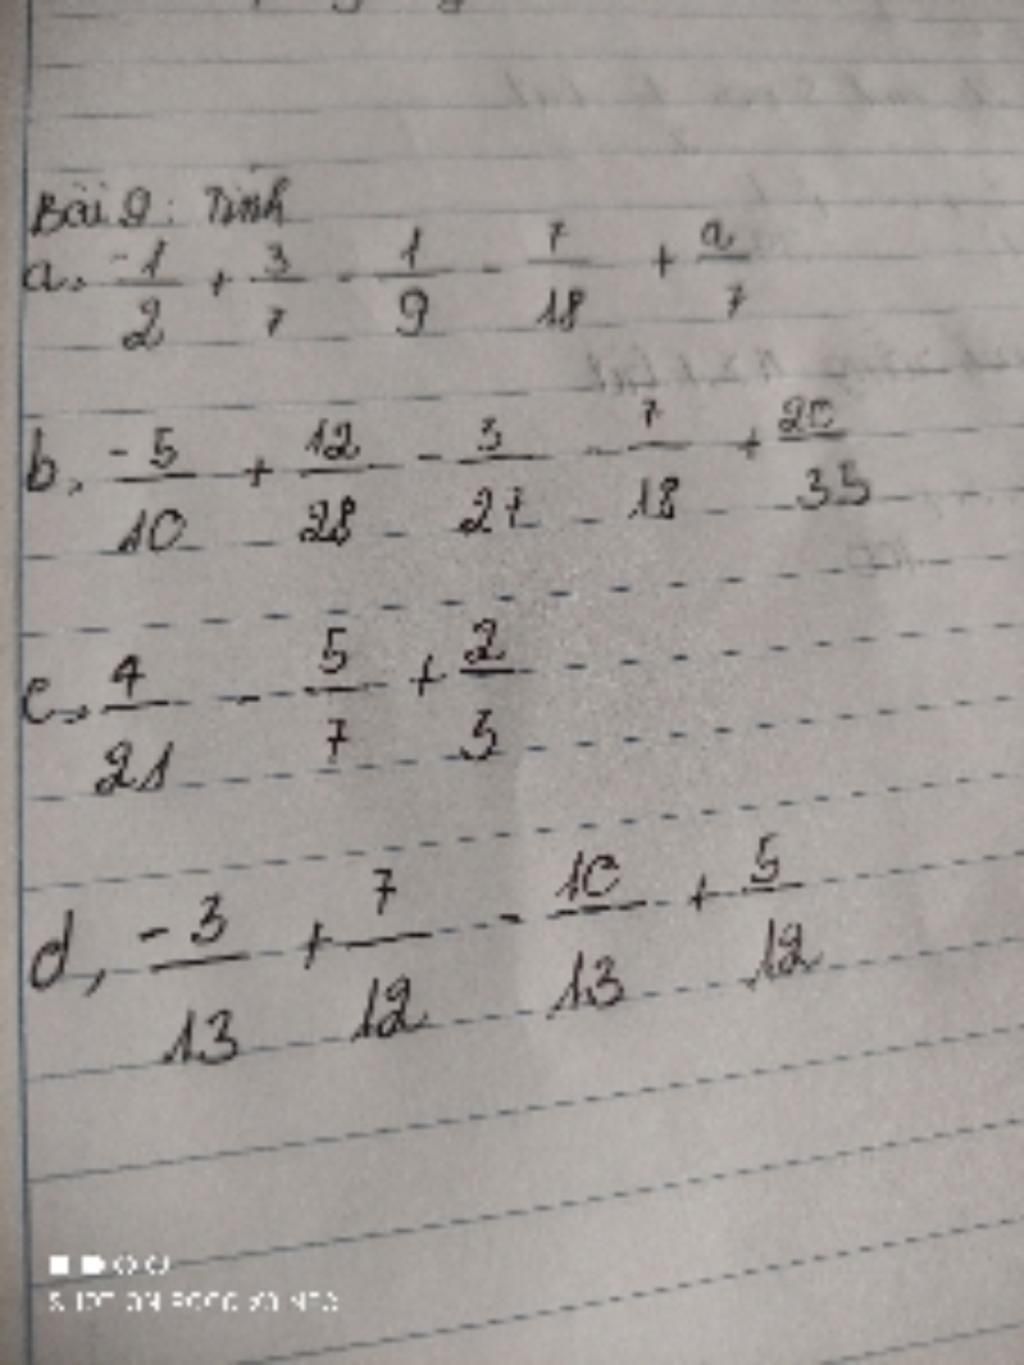 Bài 9: Tính
a, -1/2 + 3/7 - 1/9 - 7/18 + a/7
b, -5/10 + 12/28 - 3/27 - 7/18 + 20/35
c, 4/21 - 5/7 + 2/3
d, -3/13 + 7/12 - 10/13 + 5/12